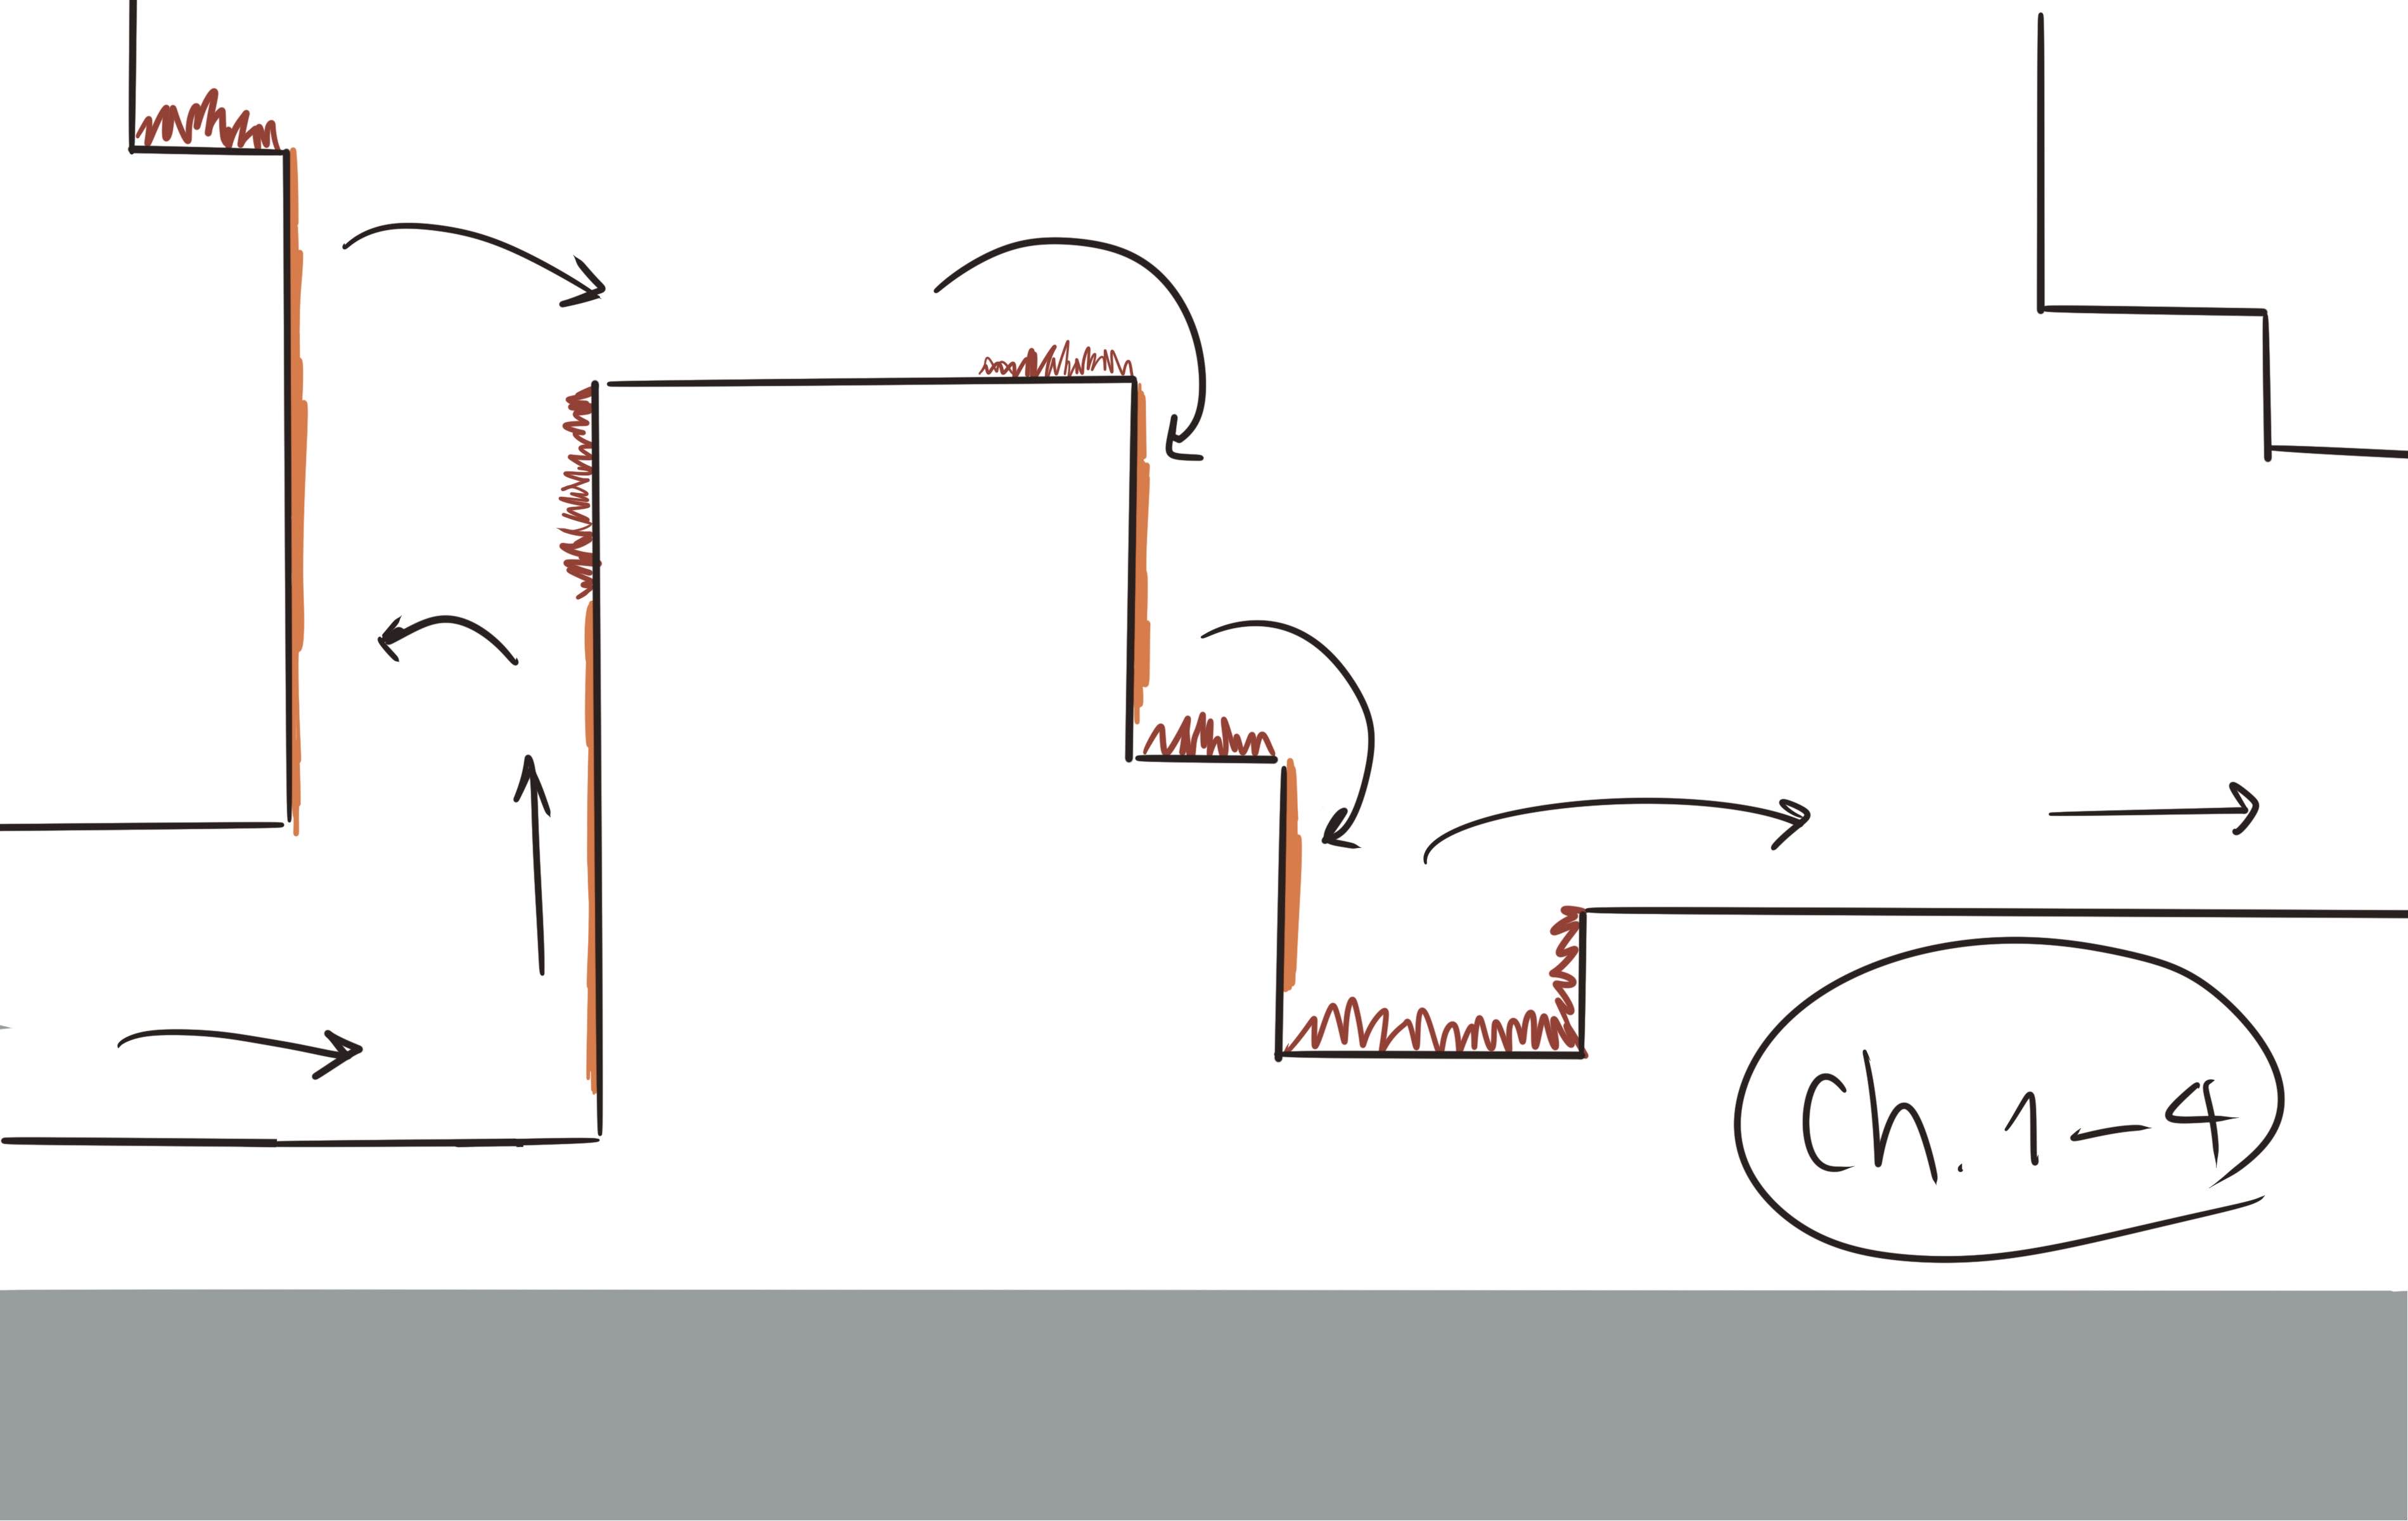 Ch. 1-4